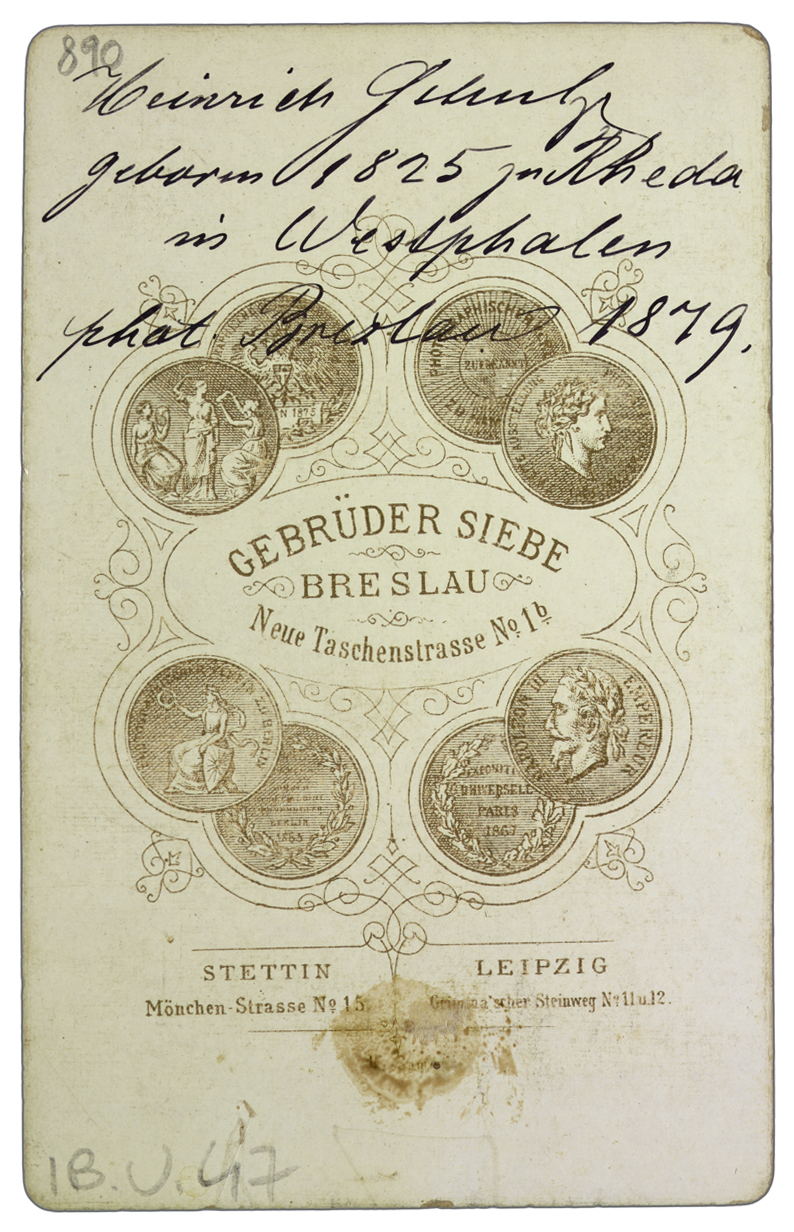 890
Heinrich Schulz
geboren 1825 zu Rheda
in Westphalen
phot. Breslau 1879.
N 1875
PHOTOGRAPHISCHER
ZUERKANNT
GEBRÜDER SIEBE
BRESLAU
Neue Taschenstrasse No. 1b
NAPOLEON III EMPEREUR
BERLIN
1865
UNIVERSELLE
PARIS
1867
STETTIN
Mönchen-Strasse No. 15.
LEIPZIG
Grimma'scher Steinweg No. 11 u. 12.
18.V.47